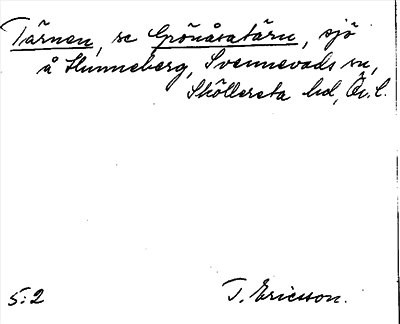 Tärnen, se Grönåsatärn, sjö
å Hunneberg, Svennevads sn,
Sköllersta hd, Ör. l.
5:2 T. Ericsson.